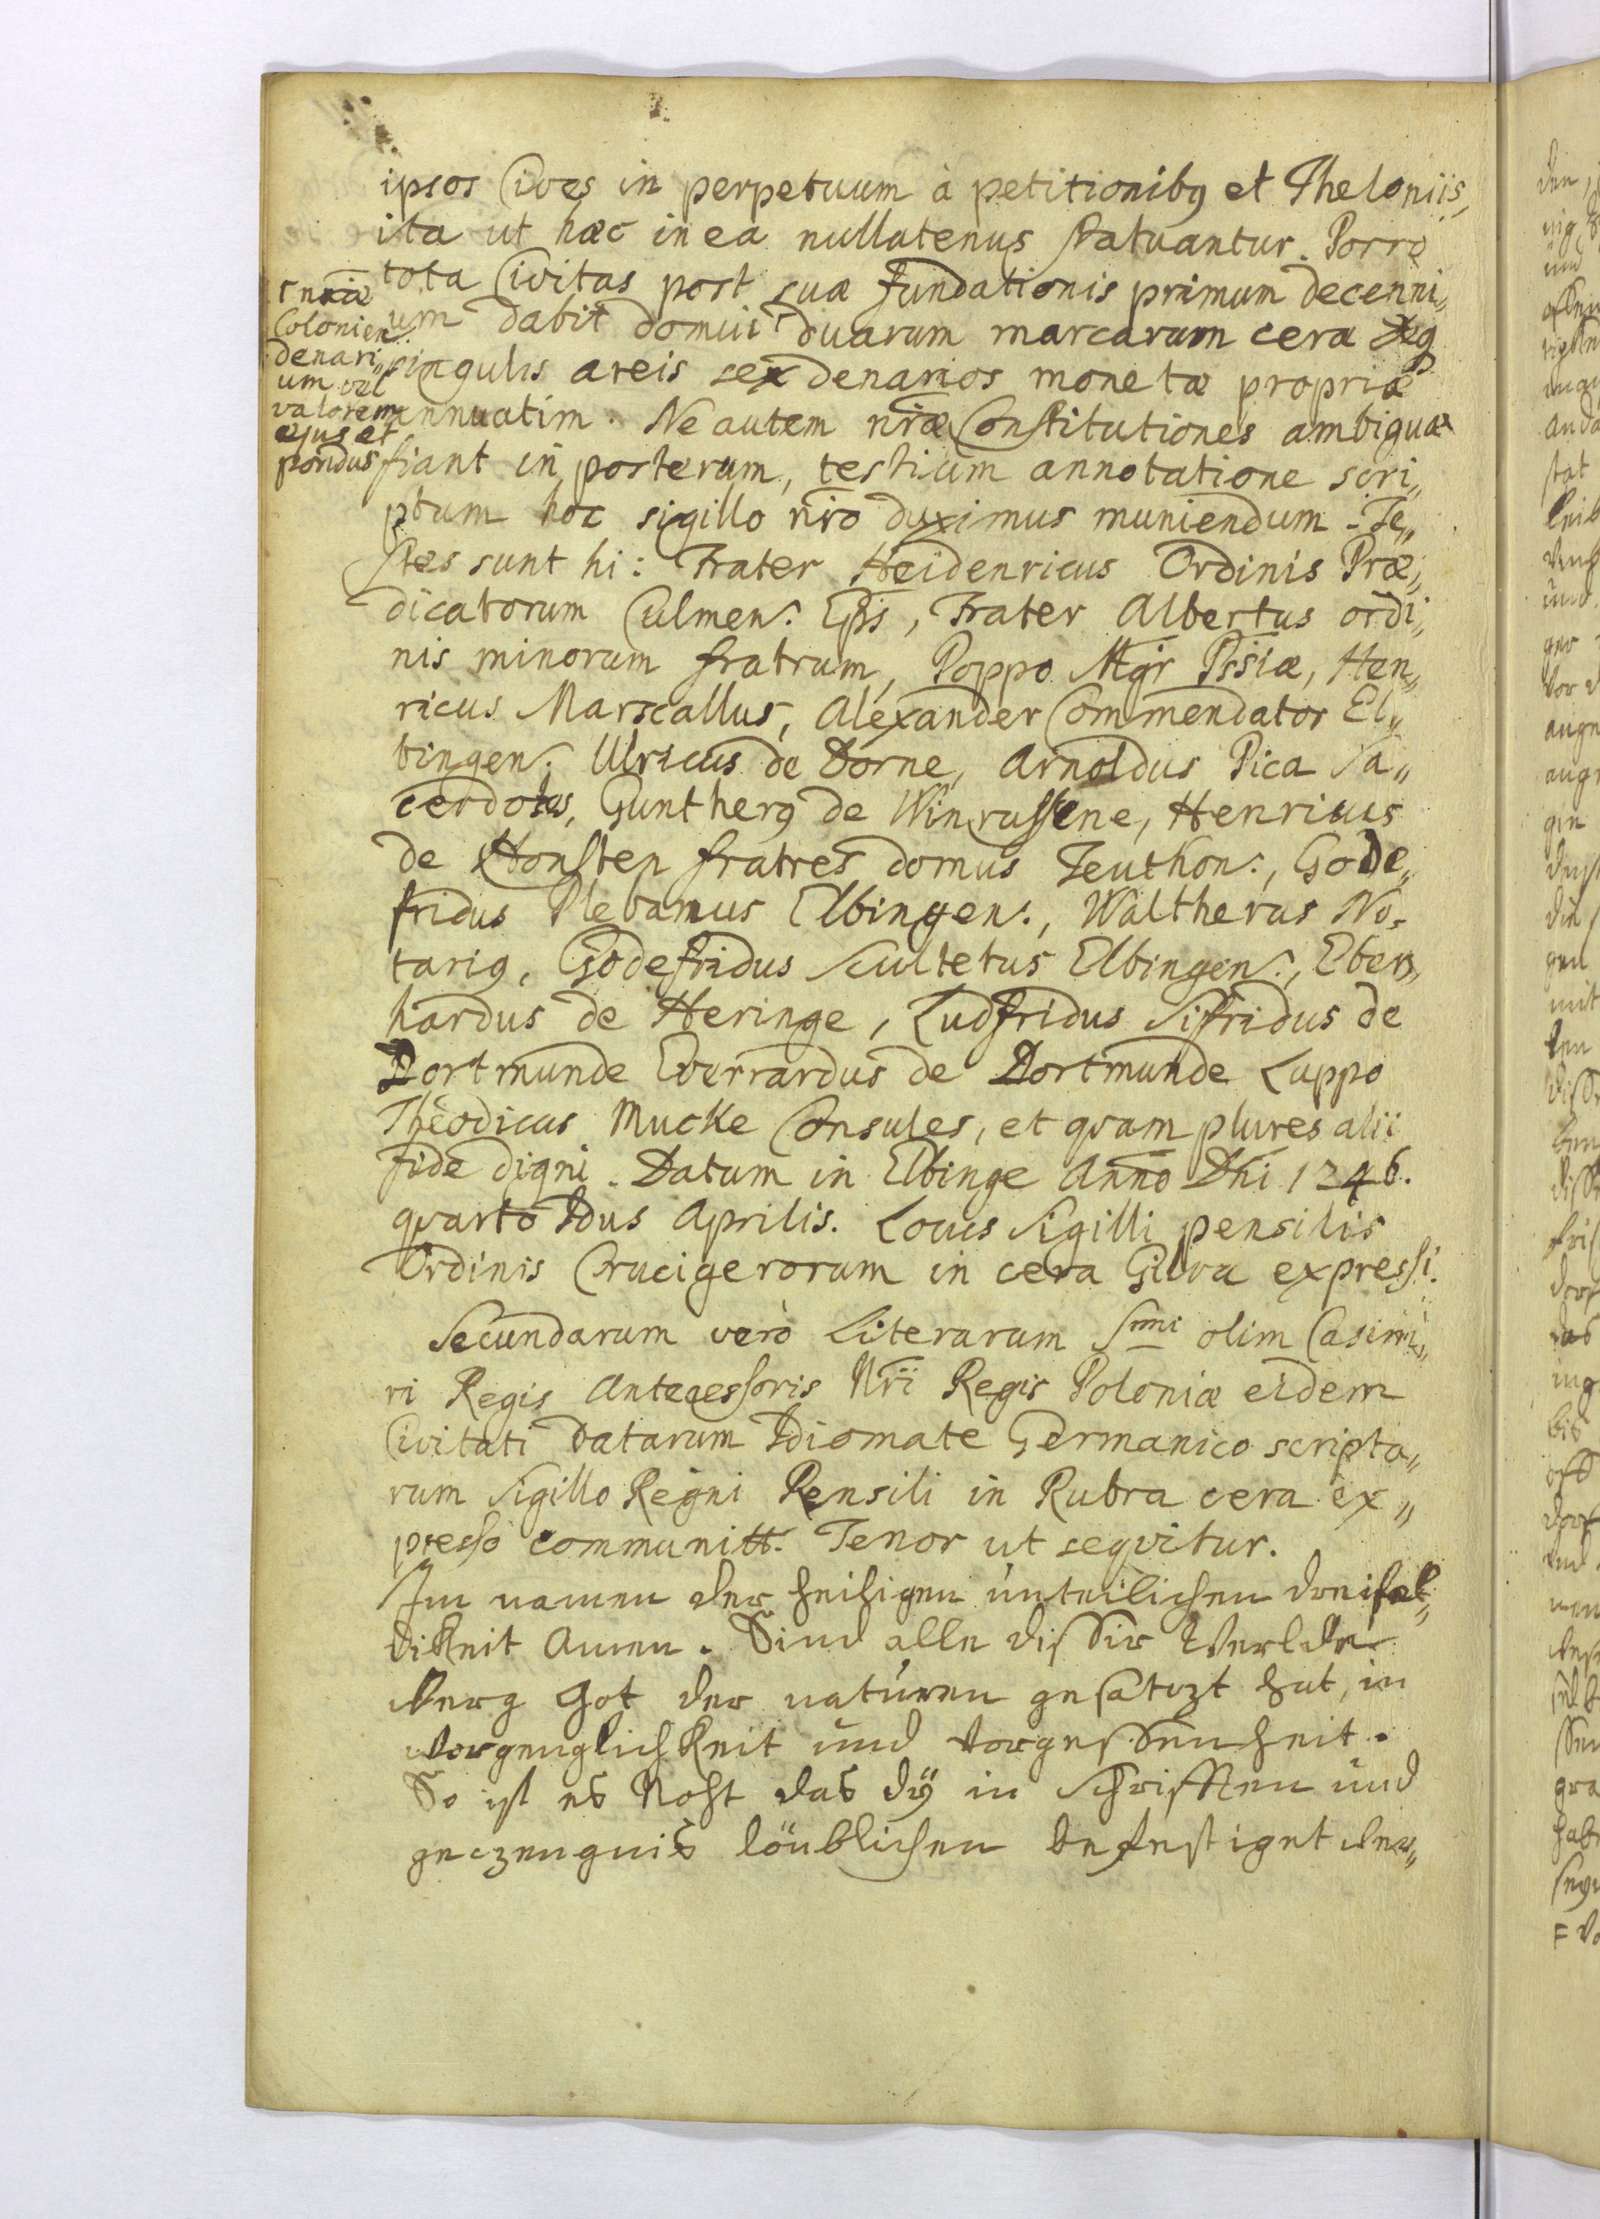 ipsos Cives in perpetuum à petitionibg et Theloniis,
ita ut hæc in ea nullatenus statuantur. Porro
tota Civitas post suæ fundationis primum decenni„
um dabit domui ⌈ duarum marcarum ceræ de
singulis areis sex denarios monetæ propriæ
annuatim. Ne autem nr̄æ Constitutiones ambiguæ
fiant in posterum, testium annotatione scri„
ptum hoc sigillo nr̄o duximus muniendum. Te„
stes sunt hi: Frater Heidenricus Ordinis Præ„
dicatorum Culmen: Eps̄, Frater Albertus ordi„
nis minorum fratrum, Poppo Mgr̄ Pss̄iæ, Hen„
ricus Marscallus, Alexander Commendator El„
bingen: Ulricus de Dorne, Arnoldus Pica Sa„
cerdotes, Guntherg de Winrustene, Henricus
de Honsten fratres domus Teuthon:, Gode„
fridus Plebanus Elbingen:, Waltherus No„
tarig, Godefridus Scultetus Elbingen:, Eber„
hardus de Heringe, Ludfridus Sifridus de
Dortmunde Everrardus de Dortmunde Luppo
Theodicus Mucke Consules, et qvam plures alii
fide digni. Datum in Elbinge Anno Dn̄i 1246.
qvarto Idus Aprilis. Locus Sigilli pensilis
Ordinis Crucigerorum in cera Gilva expressi.
Secundarum verò Literarum Smi olim Casimi„
ri Regis Antecessoris Nr̄i Regis Poloniæ eidem
Civitati datarum Idiomate Germanico scripta„
rum Sigillo Regni Pensili in Rubra cera ex„
presso communitt. Tenor ut seqvitur.
Im namen der heiligen unteilichen dreifal„
dikeit Amen. Sind alle disser Werlde
Werg Got der naturen gesatczt hat, in
vorgenglichkeit und vorgessenheit.
So ist es Noht das dÿ in Schrifften und
geczeugnis löublichen befestiget wer„
⌈ nr̄æ
Colonien:
denari„
um vel
valorem
ejus et
pondus